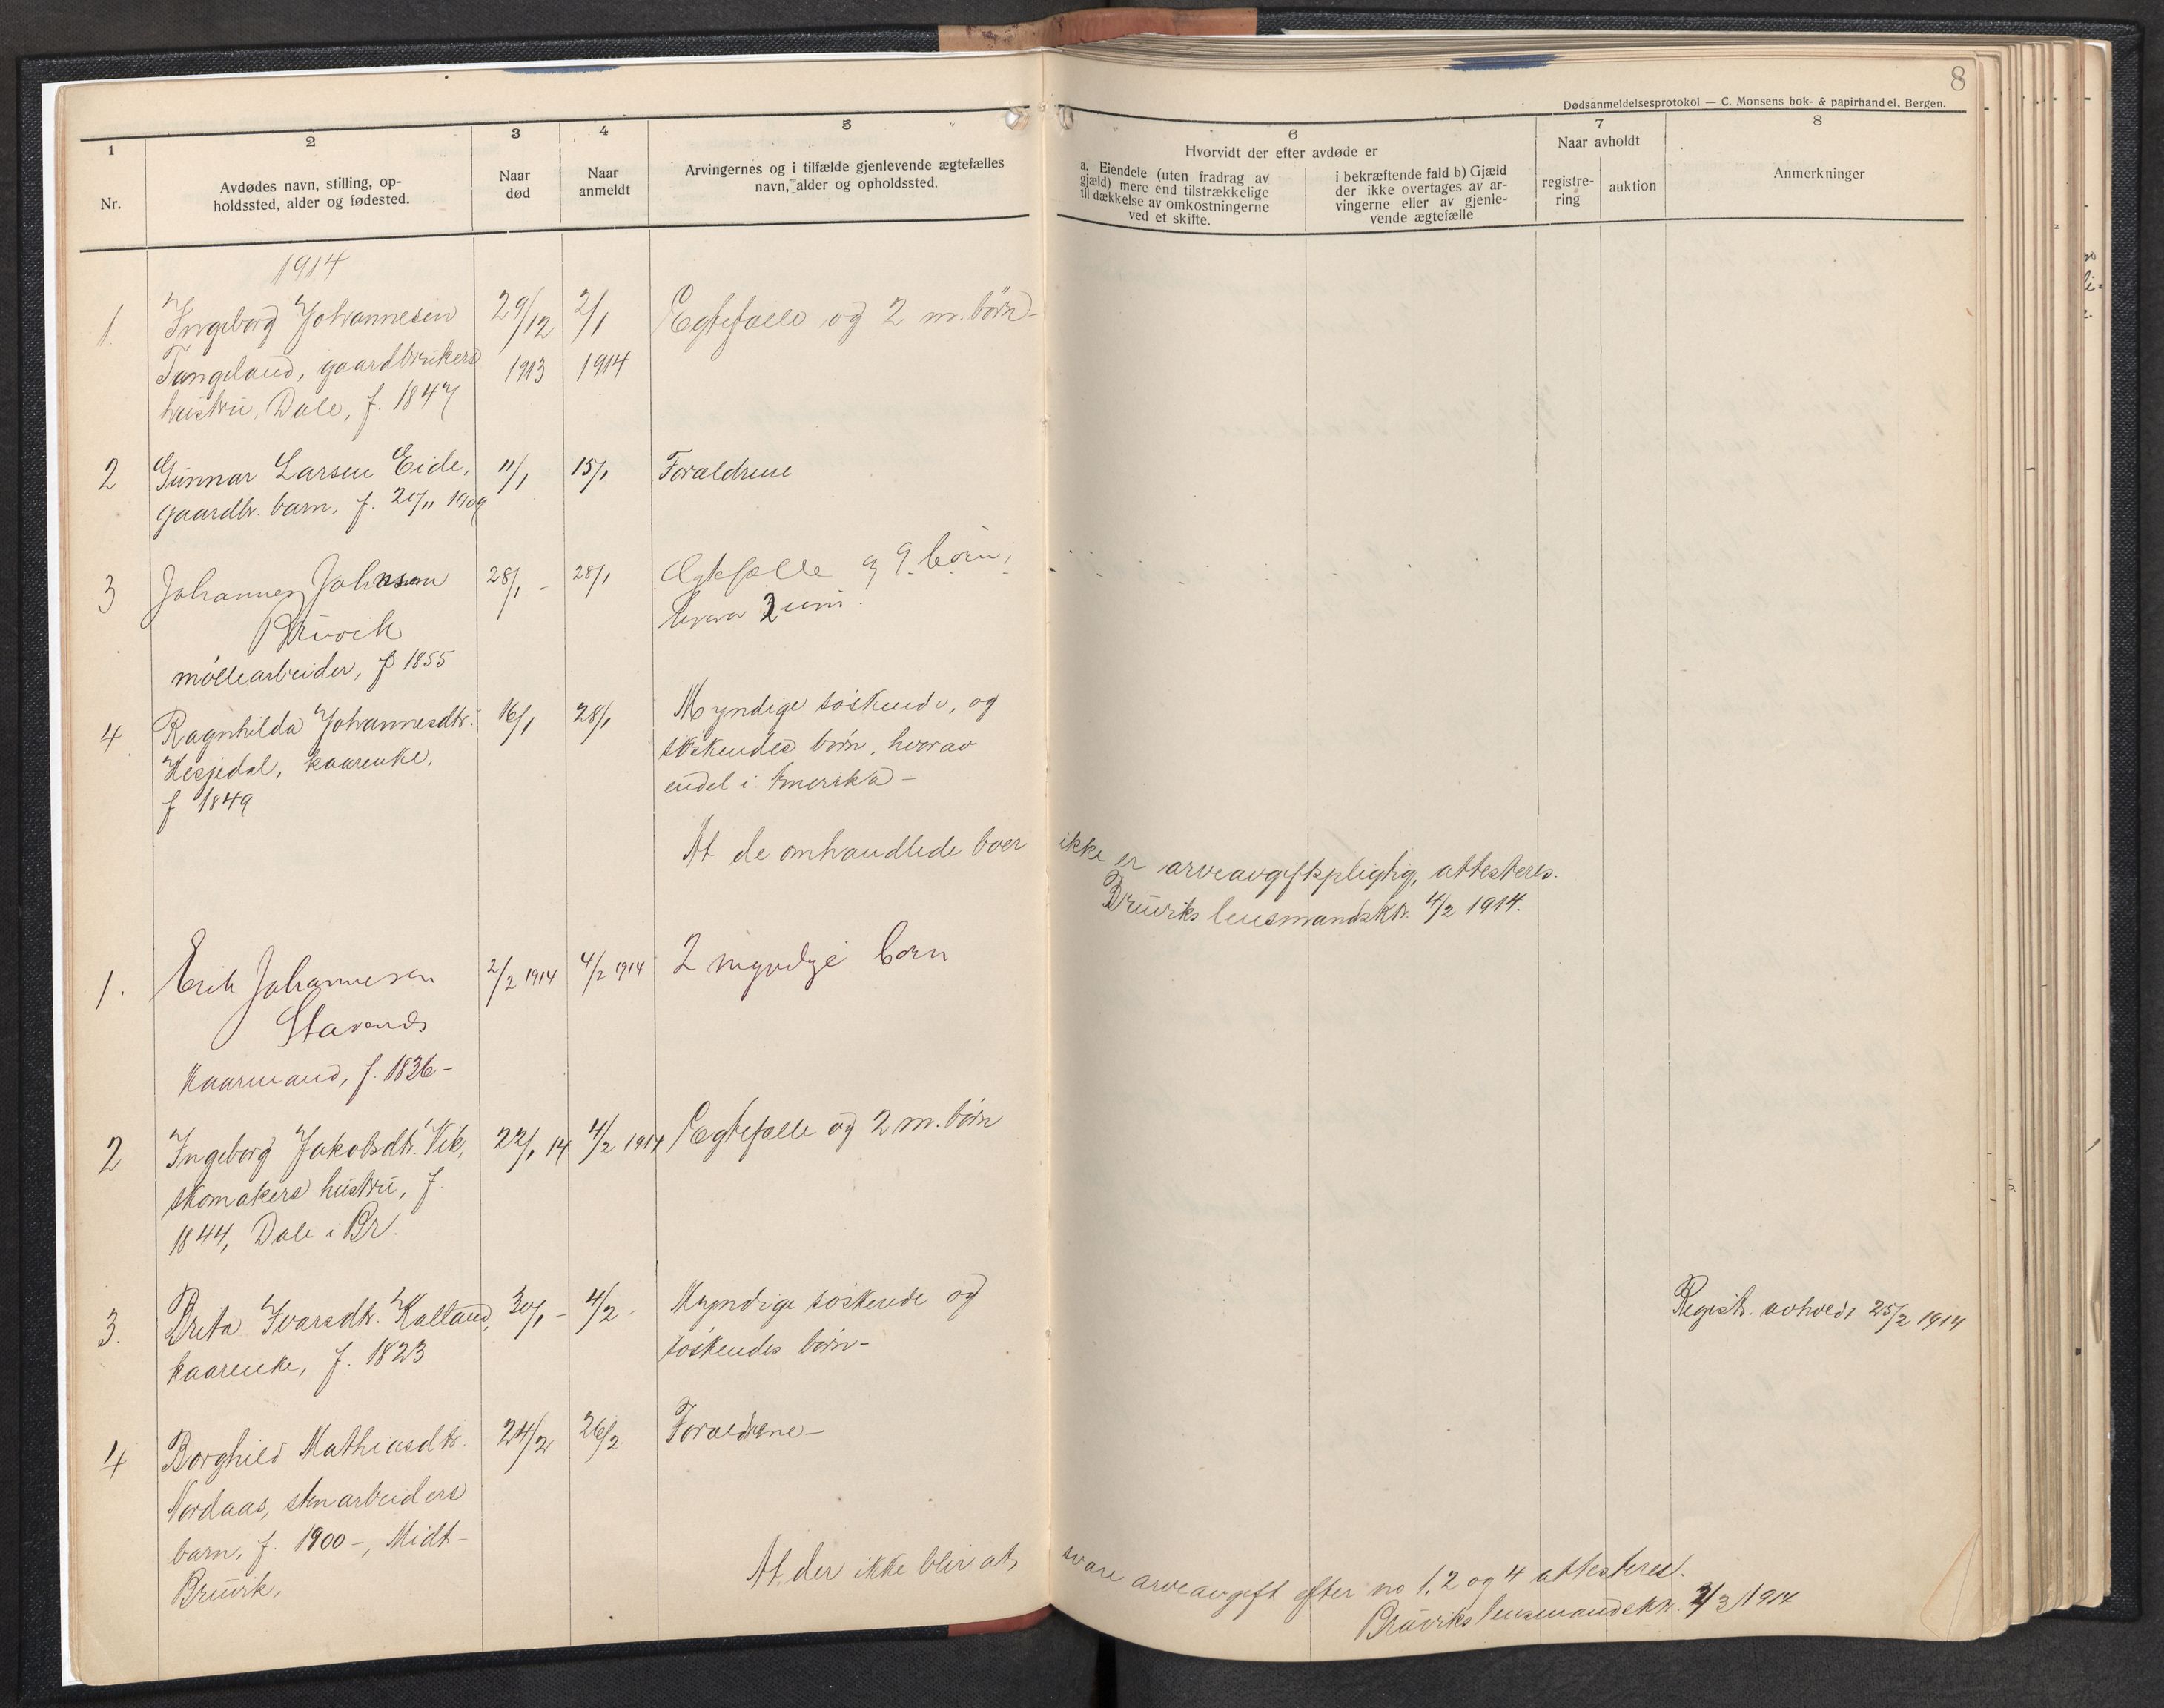 8
Dødsanmeldelsesprotokol — C. Monsens bok- & papirhandel, Bergen.
1
Nr.
2
Avdødes navn, stilling, op-
holdssted, alder og fødested.
3
Naar
død
4
Naar
anmeldt
5
Arvingernes og i tilfælde gjenlevende ægtefælles
navn, alder og opholdssted.
6
Hvorvidt der efter avdøde er
a. Eiendele (uten fradrag av
gjæld) mere end tilstrækkelige
til dækkelse av omkostningerne
ved et skifte.
i bekræftende fald b) Gjæld
der ikke overtages av ar-
vingerne eller av gjenle-
vende ægtefælle
7
Naar avholdt
registre-
ring
auktion
8
Anmerkninger
1914
1 Ingeborg Johannesen 29/12 2/1 Egtefælle og 2 m. børn-
Tangeland, gaardbrukers 1913 1914
hustru, Dale, f. 1847
2 Gunnar Larsen Eide, 11/1 15/1 Forældrene
gaardbr. barn, f. 20/11 1909
3 Johannes Johnsen 28/1 - 28/1 Ægtefælle og 9 børn,
Bruvik hvorav 3 um.
møllearbeider, f 1855
4 Ragnhilda Johannesdtr. 16/1 28/1 Myndige søskende, og
Hesjedal, kaarenke, søskendes børn, hvorav
f 1849 endel i Amerika -
At de omhandlede boer ikke er arveavgiftspligtig, attesteres.
Bruviks lensmandsktr. 4/2 1914.
1. Erik Johannesen 2/2 1914 4/2 1914 2 myndige børn
Stavenes
kaarmand, f. 1836 -
2 Ingeborg Jakobsdtr. Vik, 22/1 14 4/2 1914 Egtefælle og 2 m. børn
skomakers hustru, f.
1844, Dale i Br.
3. Brita Ivarsdtr. Kalland, 30/1 - 4/2 - Myndige søskende og Registr. avholdt 25/2 1914
kaarenke, f. 1823 søskendes børn-
4 Borghild Mathiasdtr. 24/2 26/2 Forældrene -
Nordaas, stenarbeiders
barn, f. 1900 -, Midt-
Bruvik,
At der ikke blir at svare arveavgift efter no 1, 2 og 4 attesteres.
Bruviks lensmandsktr. 2/3 1914